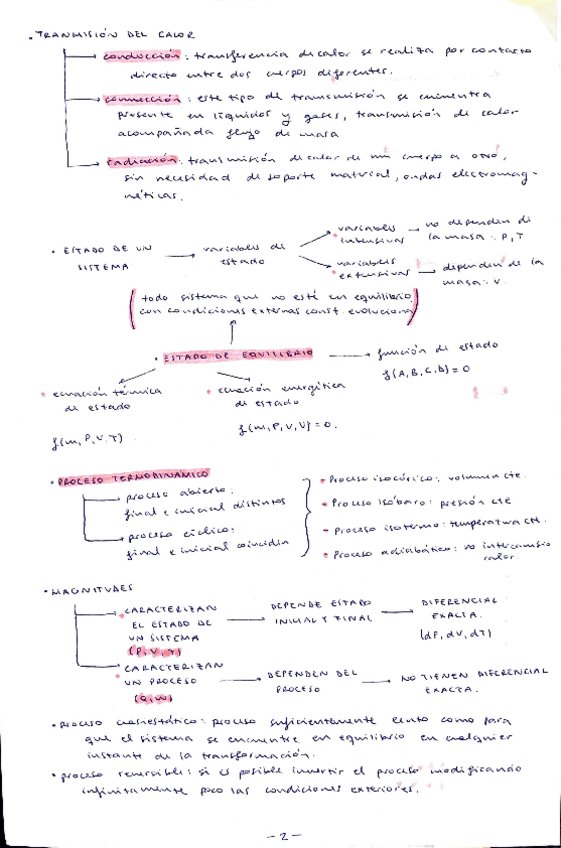 · TRANMISIÓN DEL CALOR
conducción: transferencia de calor se realiza por contacto
directo entre dos cuerpos diferentes.
convección: este tipo de transmisión se encuentra
presente en líquidos y gases, transmisión de calor
acompañada flujo de masa
radiación: transmisión de calor de un cuerpo a otro,
sin necesidad de soporte material, ondas electromag-
néticas.
· ESTADO DE UN
SISTEMA
variables de
estado
variables
intensivas
no dependen de
la masa: P, T
variables
extensivas
dependen de la
masa: V.
(todo sistema que no esté en equilibrio
con condiciones externas const. evoluciona)
· ESTADO DE EQUILIBRIO
función de estado
f(A, B, C, D) = 0
· ecuación térmica
de estado
f(m, P, V, T)
· ecuación energética
de estado
f(m, P, V, U) = 0.
· PROCESO TERMODINÁMICO
proceso abierto:
final e inicial distintos
proceso cíclico:
final e inicial coinciden
· Proceso isocórico: volumen cte.
· Proceso isóbaro: presión cte
· Proceso isotermo: temperatura cte.
· Proceso adiabático: no intercambio
calor.
· MAGNITUDES
CARACTERIZAN
EL ESTADO DE
UN SISTEMA
(P, V, T)
DEPENDE ESTADO
INICIAL Y FINAL
DIFERENCIAL
EXACTA.
(dP, dV, dT)
CARACTERIZAN
UN PROCESO
(Q, W)
DEPENDEN DEL
PROCESO
NO TIENEN DIFERENCIAL
EXACTA.
· proceso cuasiestático: proceso suficientemente lento como para
que el sistema se encuentre en equilibrio en cualquier
instante de la transformación.
· proceso reversible: si es posible invertir el proceso modificando
infinitamente poco las condiciones exteriores.
- 2 -